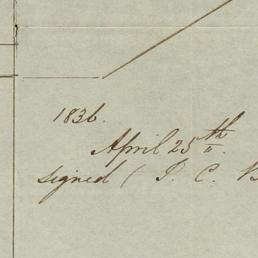 1836.
April 25th.
signed ( J. C.